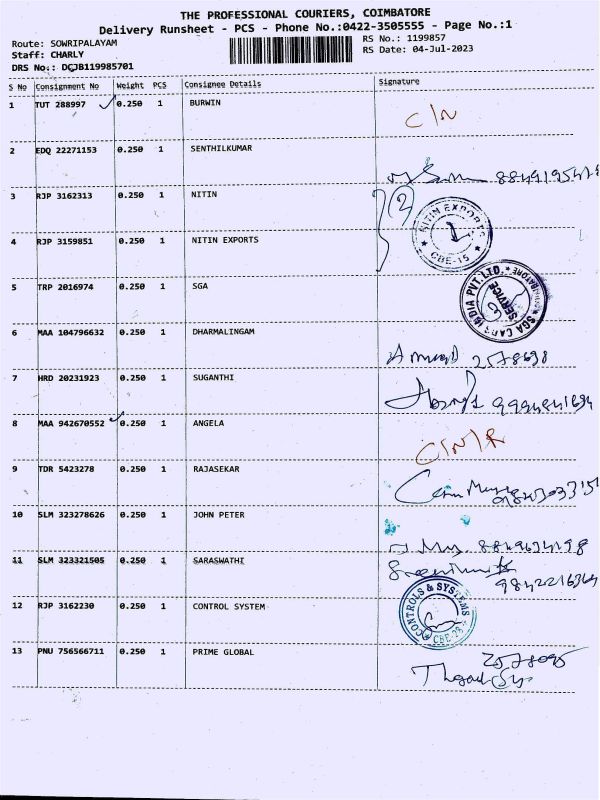 THE PROFESSIONAL COURIERS, COIMBATORE
Delivery Runsheet - PCS - Phone No.:0422-3505555 - Page No.:1
Route: SOWRIPALAYAM
RS No.: 1199857
Staff: CHARLY
RS Date: 04-Jul-2023
DRS No.: DCJB119985701
S No Consignment No Weight PCS Consignee Details Signature
1 TUT 288997 0.250 1 BURWIN C/N
2 EDQ 22271153 0.250 1 SENTHILKUMAR
3 RJP 3162313 0.250 1 NITIN 2
NITIN EXPORTS
CBE-15
4 RJP 3159851 0.250 1 NITIN EXPORTS
5 TRP 2016974 0.250 1 SGA
SGA CARS INDIA PVT.LTD. COIMBATORE
SERVICE
6 MAA 104796632 0.250 1 DHARMALINGAM 2578698
7 HRD 20231923 0.250 1 SUGANTHI
8 MAA 942670552 0.250 1 ANGELA C/N/R
9 TDR 5423278 0.250 1 RAJASEKAR
10 SLM 323278626 0.250 1 JOHN PETER
11 SLM 323321505 0.250 1 SARASWATHI
9842216364
12 RJP 3162230 0.250 1 CONTROL SYSTEM
CONTROLS & SYSTEMS
CBE-28
13 PNU 756566711 0.250 1 PRIME GLOBAL